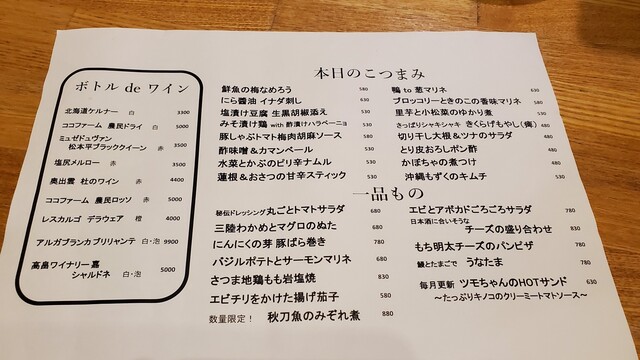 ボトル de ワイン
北海道ケルナー 白 3300
ココファーム 農民ドライ 白 5000
ミュゼドュヴァン
松本平ブラッククイーン 赤 3500
塩尻メルロー 赤 3500
奥出雲 杜のワイン 赤 4400
ココファーム 農民ロッソ 赤 5000
レスカルゴ デラウェア 橙 4000
アルガブランカ ブリリャンテ 白・泡 9900
高畠ワイナリー 嘉
シャルドネ 白・泡 5000
本日のこつまみ
鮮魚の梅なめろう 580
にら醤油 イナダ刺し 630
塩漬け豆腐 生黒胡椒添え 530
みそ漬け鶏 with 酢漬けハラペーニョ 530
豚しゃぶトマト梅肉胡麻ソース 580
酢味噌&カマンベール 530
水菜とかぶのピリ辛ナムル 530
蓮根&おさつの甘辛スティック 530
鴨 to 葱マリネ 630
ブロッコリーときのこの香味マリネ 580
里芋と小松菜のゆかり煮 530
さっぱりシャキシャキ きくらげもやし(爽) 480
切り干し大根&ツナのサラダ 480
とり皮おろしポン酢 480
かぼちゃの煮つけ 480
沖縄もずくのキムチ 530
一品もの
秘伝ドレッシング 丸ごとトマトサラダ 680
三陸わかめとマグロのぬた 680
にんにくの芽 豚ばら巻き 780
バジルポテトとサーモンマリネ 680
さつま地鶏もも岩塩焼 830
エビチリをかけた揚げ茄子 580
数量限定! 秋刀魚のみぞれ煮 880
エビとアボカドごろごろサラダ 780
日本酒に合いそうな
チーズの盛り合わせ 830
もち明太チーズのパンピザ 780
鰻とたまごで うなたま 780
毎月更新 ツモちゃんのHOTサンド 630
〜たっぷりキノコのクリーミートマトソース〜